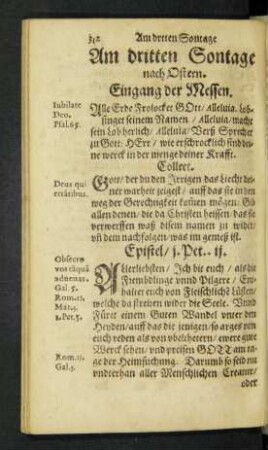 342 Am dritten Sontage
Am dritten Sontage
nach Ostern.
Eingang der Messen.
Iubilate
Deo.
Psal.65.
Alle Erde Frolocket GOtt/ Alleluia. Lob-
singet seinem Namen / Alleluia/ macht
sein Lob herlich/ Alleluia/ Verß Sprechet
zu Gott: HErr / wie erschrocklich sind dei-
ne werck in der menge deiner Krafft.
Collect.
Deus qui
errātibus.
Gott/ der du den Irrigen das Liecht dei-
ner warheit zeigest/ auff das sie in den
weg der Gerechtigkeit kom̃en mögen: Gib
allen denen/ die da Christen heissen/ das sie
verwerffen waß disem namen zu wider/
vñ dem nachfolgen/ was im gemeß ist.
Epistel / j. Pet.. ij.
Obsecro
vos tāquā
aduenas.
Gal. 5.
Rom.13.
Mat.5.
1.Pet.3.
Rom.13.
Gal.5.
Allerliebsten / Ich bit euch / als die
Frembdlinge vnnd Pilger / En-
haltet euch von Fleischlichẽ Lüsten/
welche da streiten wider die Seele. Vnnd
Füret einem Guten Wandel vnter den
Heyden/ auff das die jenigen/ so arges von
euch reden als von vbelthetern/ ewere gute
Werck sehen/ vnd preisen GOTT am ta-
ge der Heimsuchung. Darumb so seid nu
vnderthan aller Menschlichen Creatur/
oder